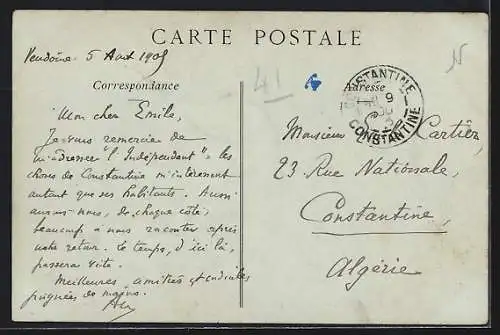 CARTE POSTALE
Vendôme 5 Aout 1905
41
Correspondance
Mon cher Emile,
Je vous remercie de
m'adresser "l'Indépendant", les
choses de Constantine m'intéressent
autant que ses habitants. Aussi
aurons-nous, de chaque côté,
beaucoup à nous raconter après
notre retour. Le temps, d'ici là,
passera vite.
Meilleures amitiés et cordiales
poignées de mains.
Adresse
CONSTANTINE
CONSTANTINE
Monsieur Cartier,
23 Rue Nationale,
Constantine,
Algérie